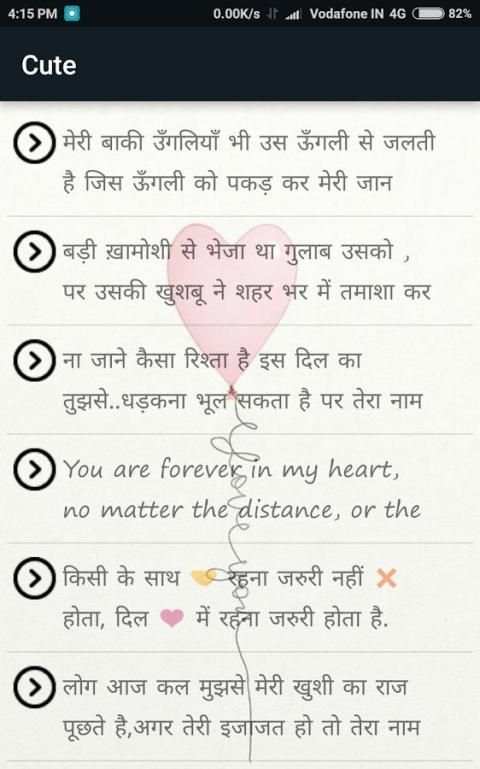 4:15 PM 0.00K/s Vodafone IN 4G 82%
Cute
मेरी बाकी उँगलियाँ भी उस ऊँगली से जलती
है जिस ऊँगली को पकड़ कर मेरी जान
बड़ी ख़ामोशी से भेजा था गुलाब उसको ,
पर उसकी खुशबू ने शहर भर में तमाशा कर
ना जाने कैसा रिश्ता है इस दिल का
तुझसे..धड़कना भूल सकता है पर तेरा नाम
You are forever in my heart,
no matter the distance, or the
किसी के साथ 🤝 रहना जरुरी नहीं ❌
होता, दिल ❤ में रहना जरुरी होता है.
लोग आज कल मुझसे मेरी खुशी का राज
पूछते है,अगर तेरी इजाजत हो तो तेरा नाम